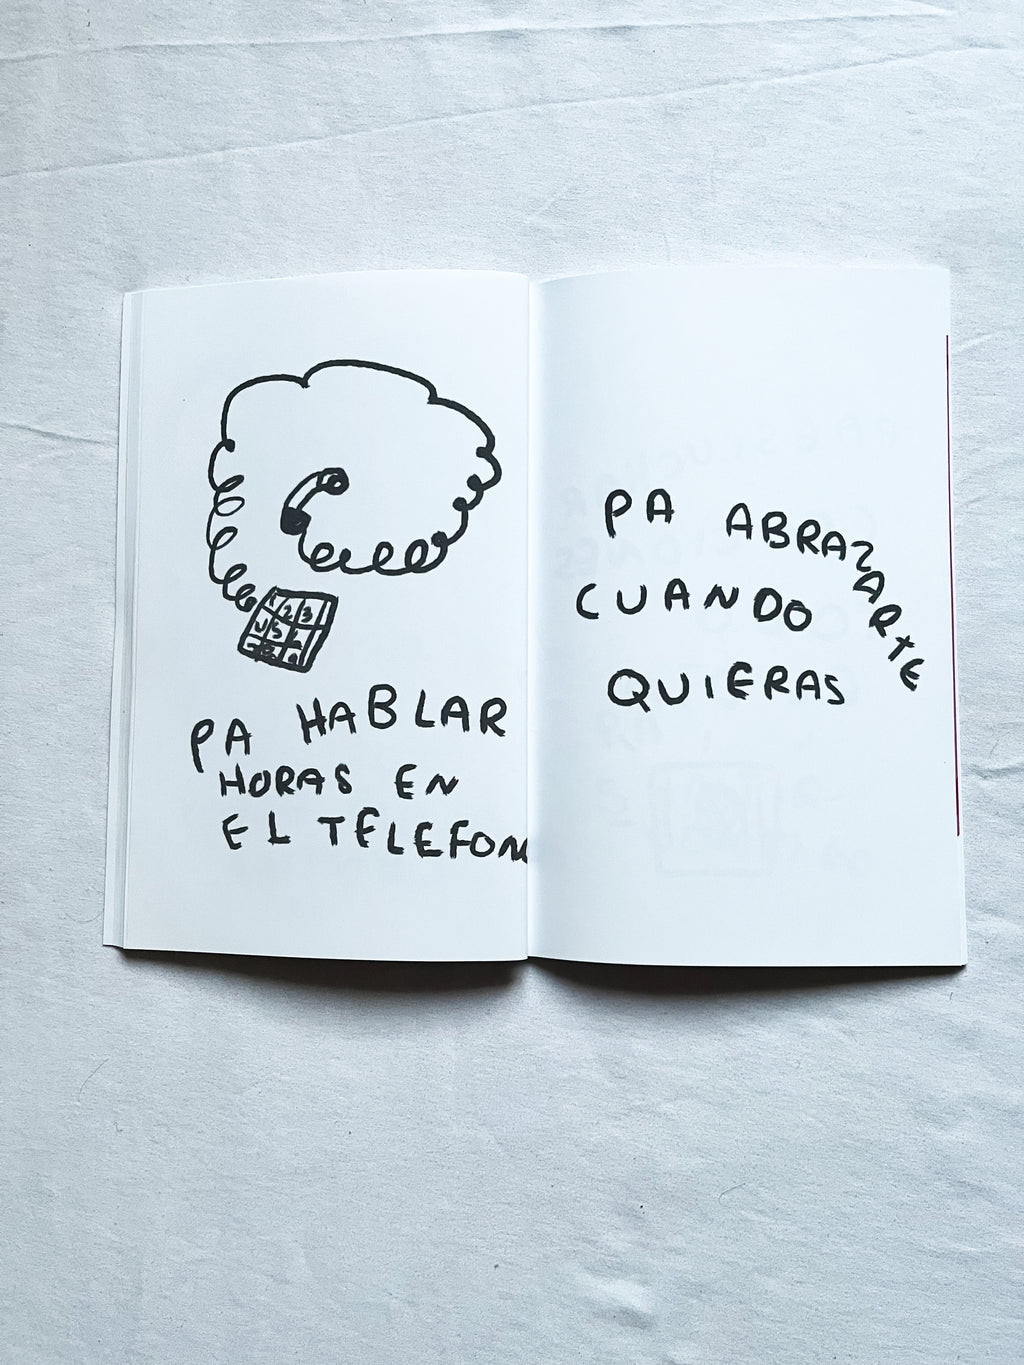 1 2 3
PA HABLAR
HORAS EN
EL TELEFONO
PA ABRAZARTE
CUANDO
QUIERAS